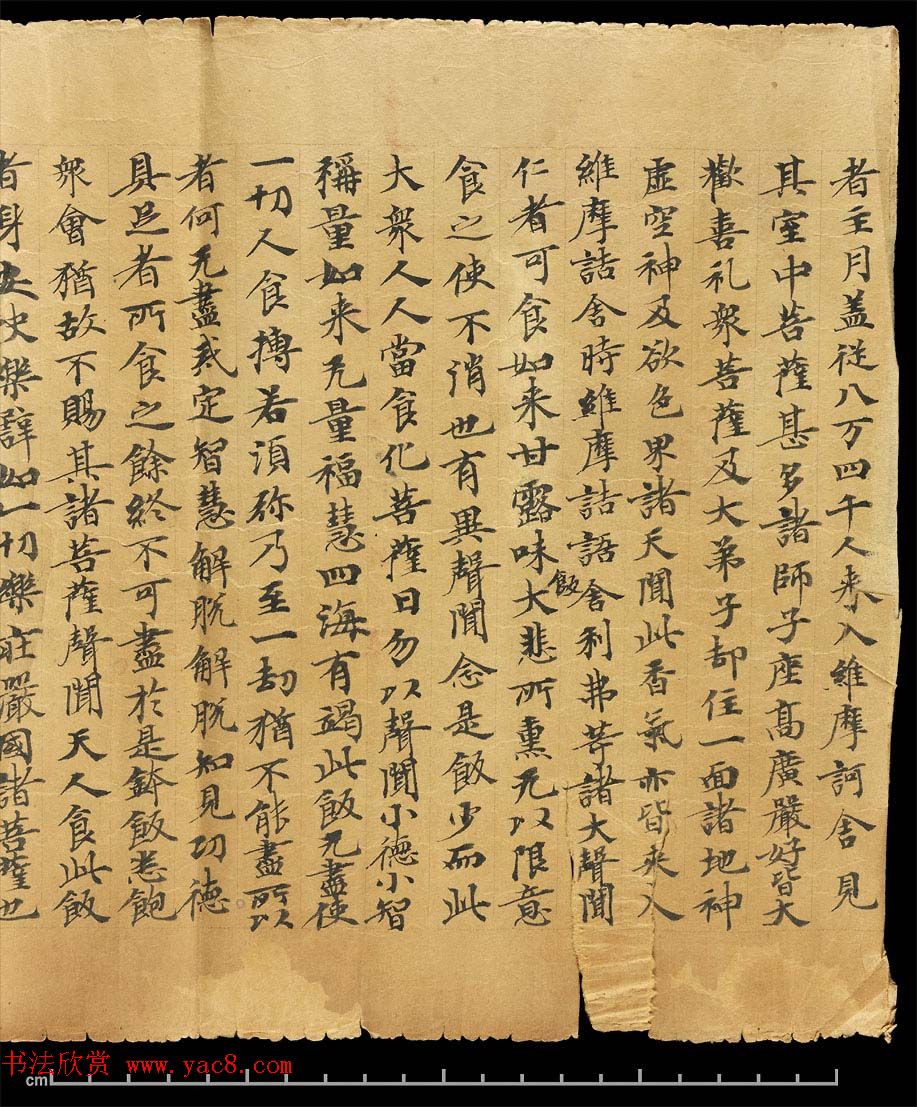 者主月盖從八万四千人来入維摩詰舍見
其室中菩薩甚多諸師子座高廣嚴好皆大
歡喜礼衆菩薩及大弟子却住一面諸地神
虚空神及欲色界諸天聞此香氣亦皆来入
維摩詰舍時維摩詰語舍利弗等諸大聲聞
仁者可食如来甘露味飯大悲所熏无以限意
食之使不消也有異聲聞念是飯少而此
大衆人人當食化菩薩曰勿以聲聞小德小智
稱量如来无量福慧四海有竭此飯无盡使
一切人食摶若湏弥乃至一劫猶不能盡所以
者何无盡戒定智慧解脱解脱知見功德
具足者所食之餘終不可盡於是鉢飯悉飽
衆會猶故不賜其諸菩薩聲聞天人食此飯
者身安快樂譬如一切樂莊嚴國諸菩薩也
书法欣赏 www.yac8.com
cm